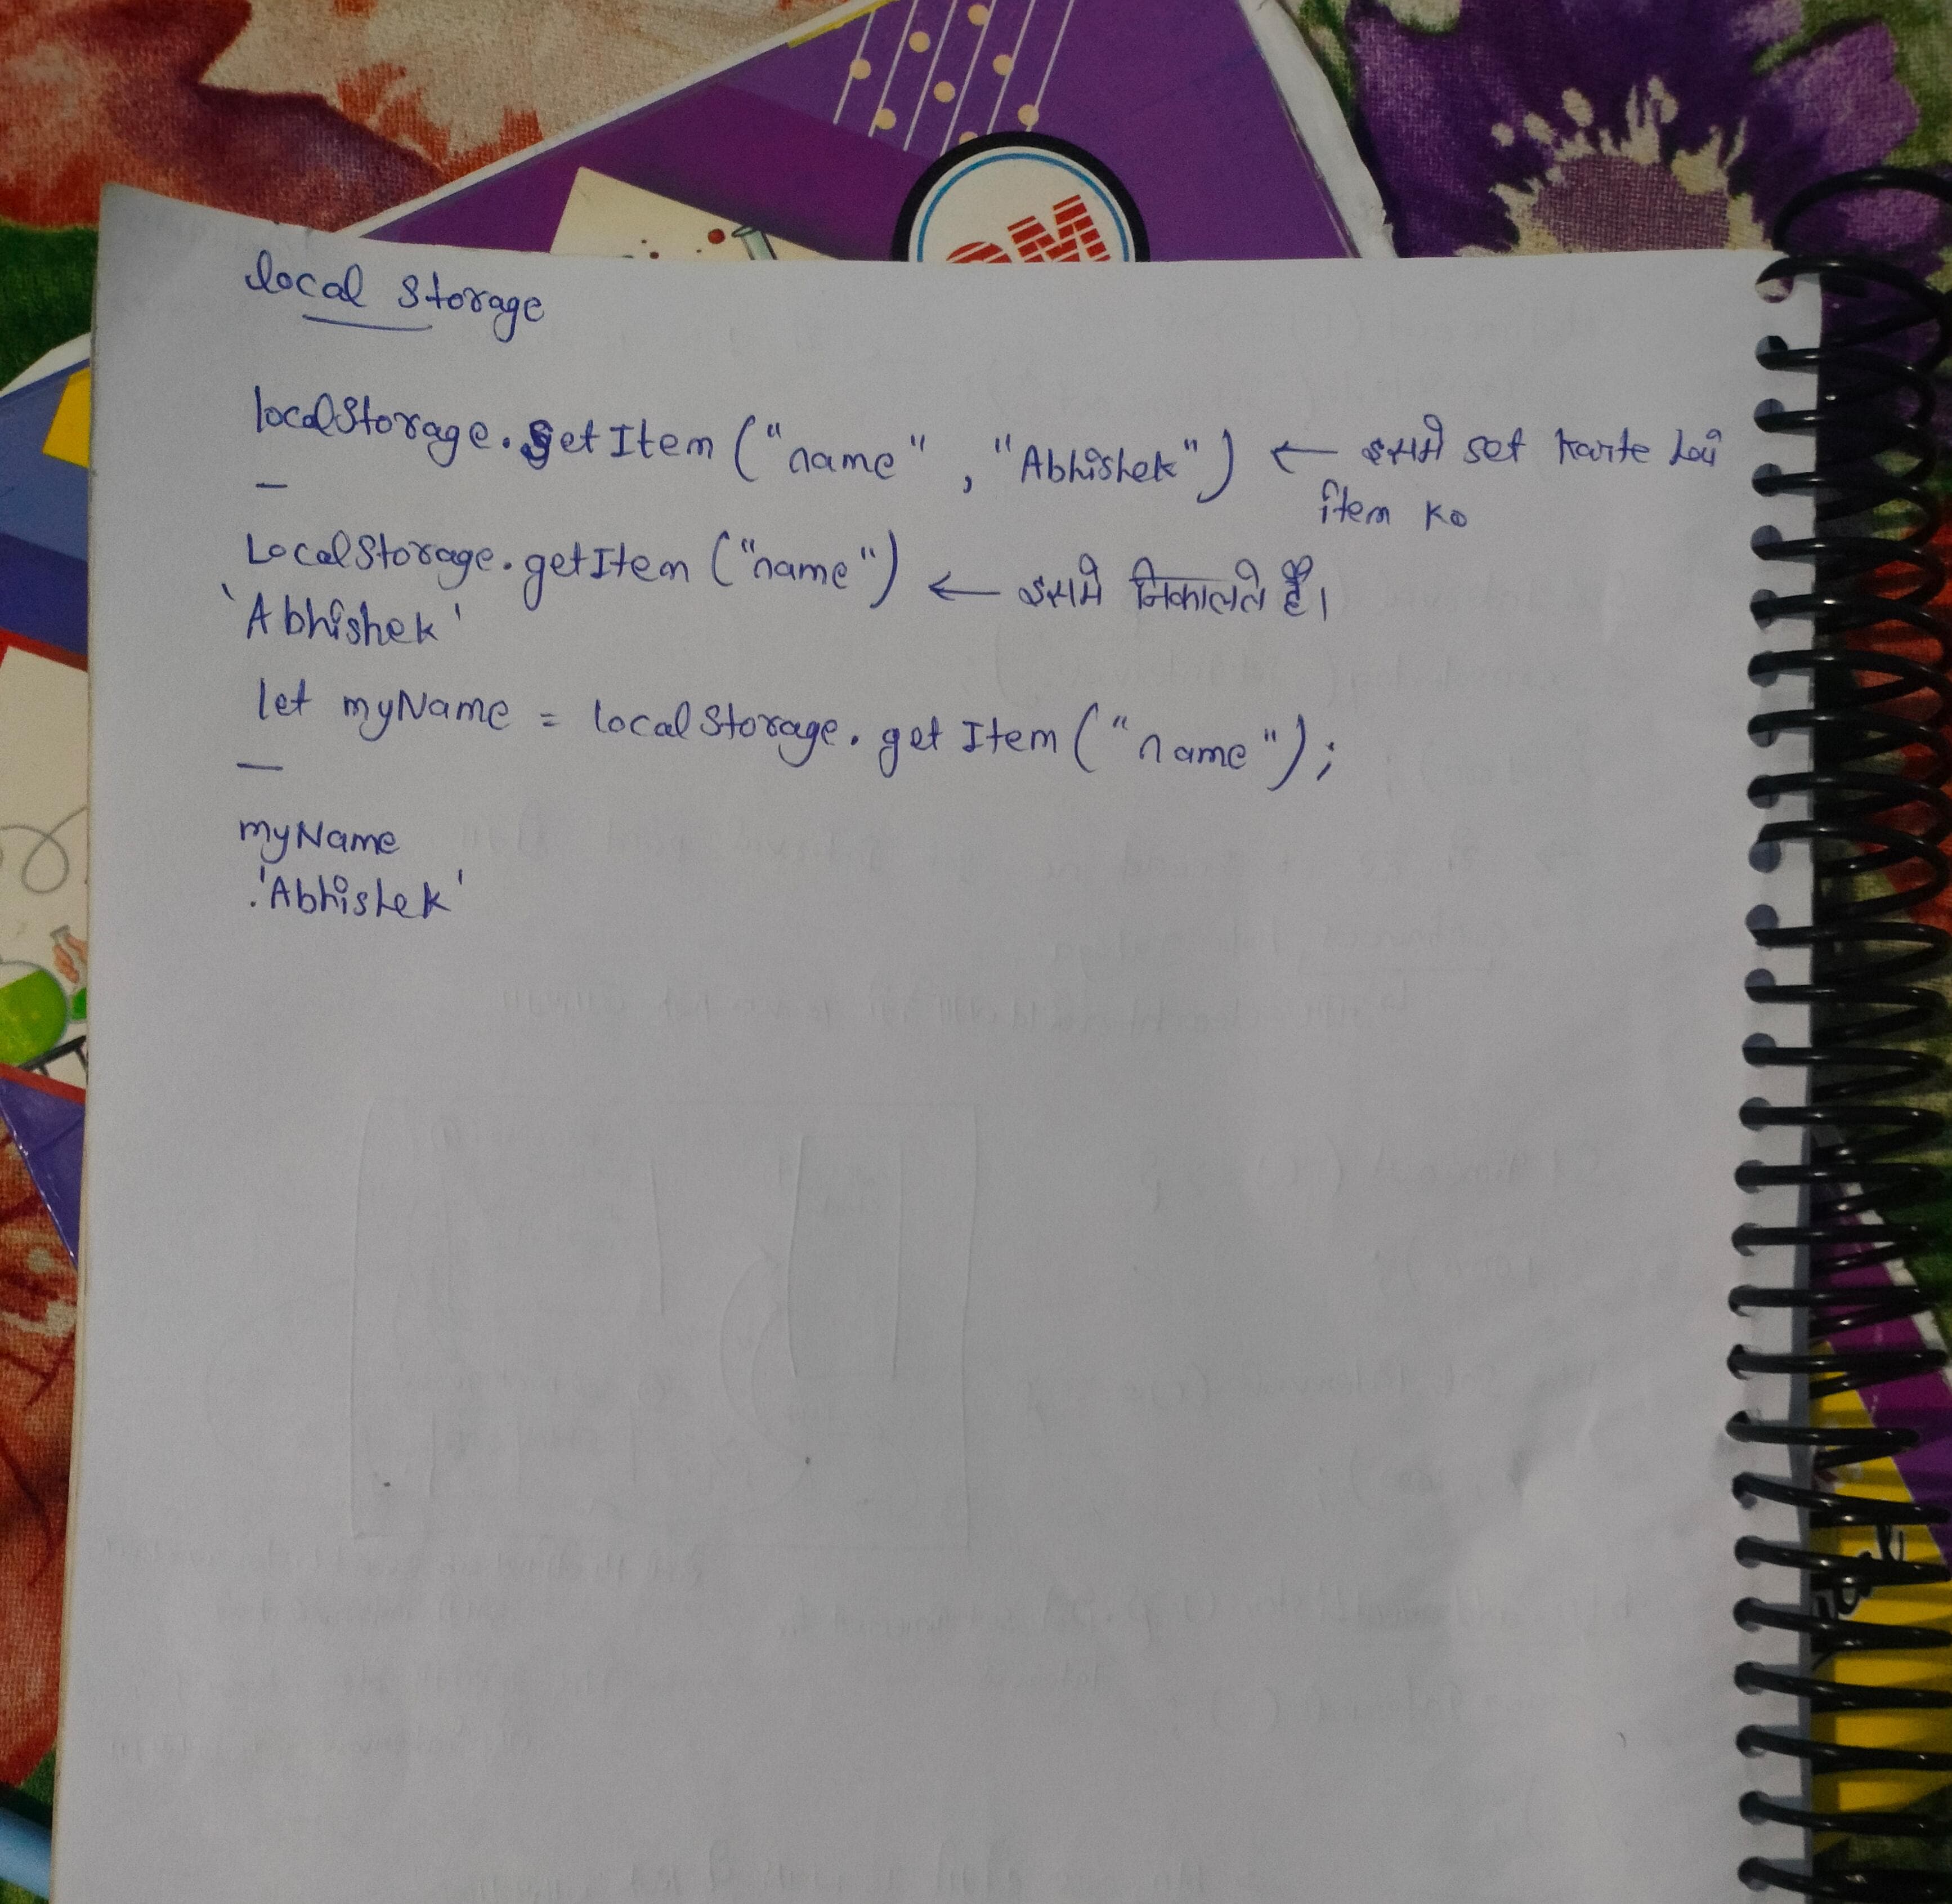 local storage
localStorage.setItem ("name" , "Abhishek") ← इसमे set karte hai
item ko
LocalStorage.getItem ("name") ← इसमे निकालते है।
'Abhishek'
let myName = localStorage.getItem ("name");
myName
'Abhishek'